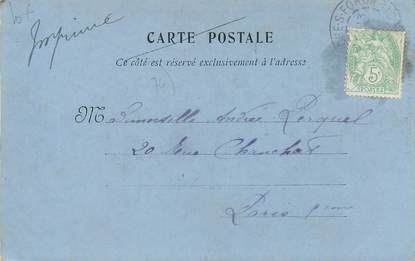 Imprimé
CARTE POSTALE
Ce côté est réservé exclusivement à l'adresse
Mademoiselle Andrée
20 Rue Chauchat
Paris 9eme
5
POSTES